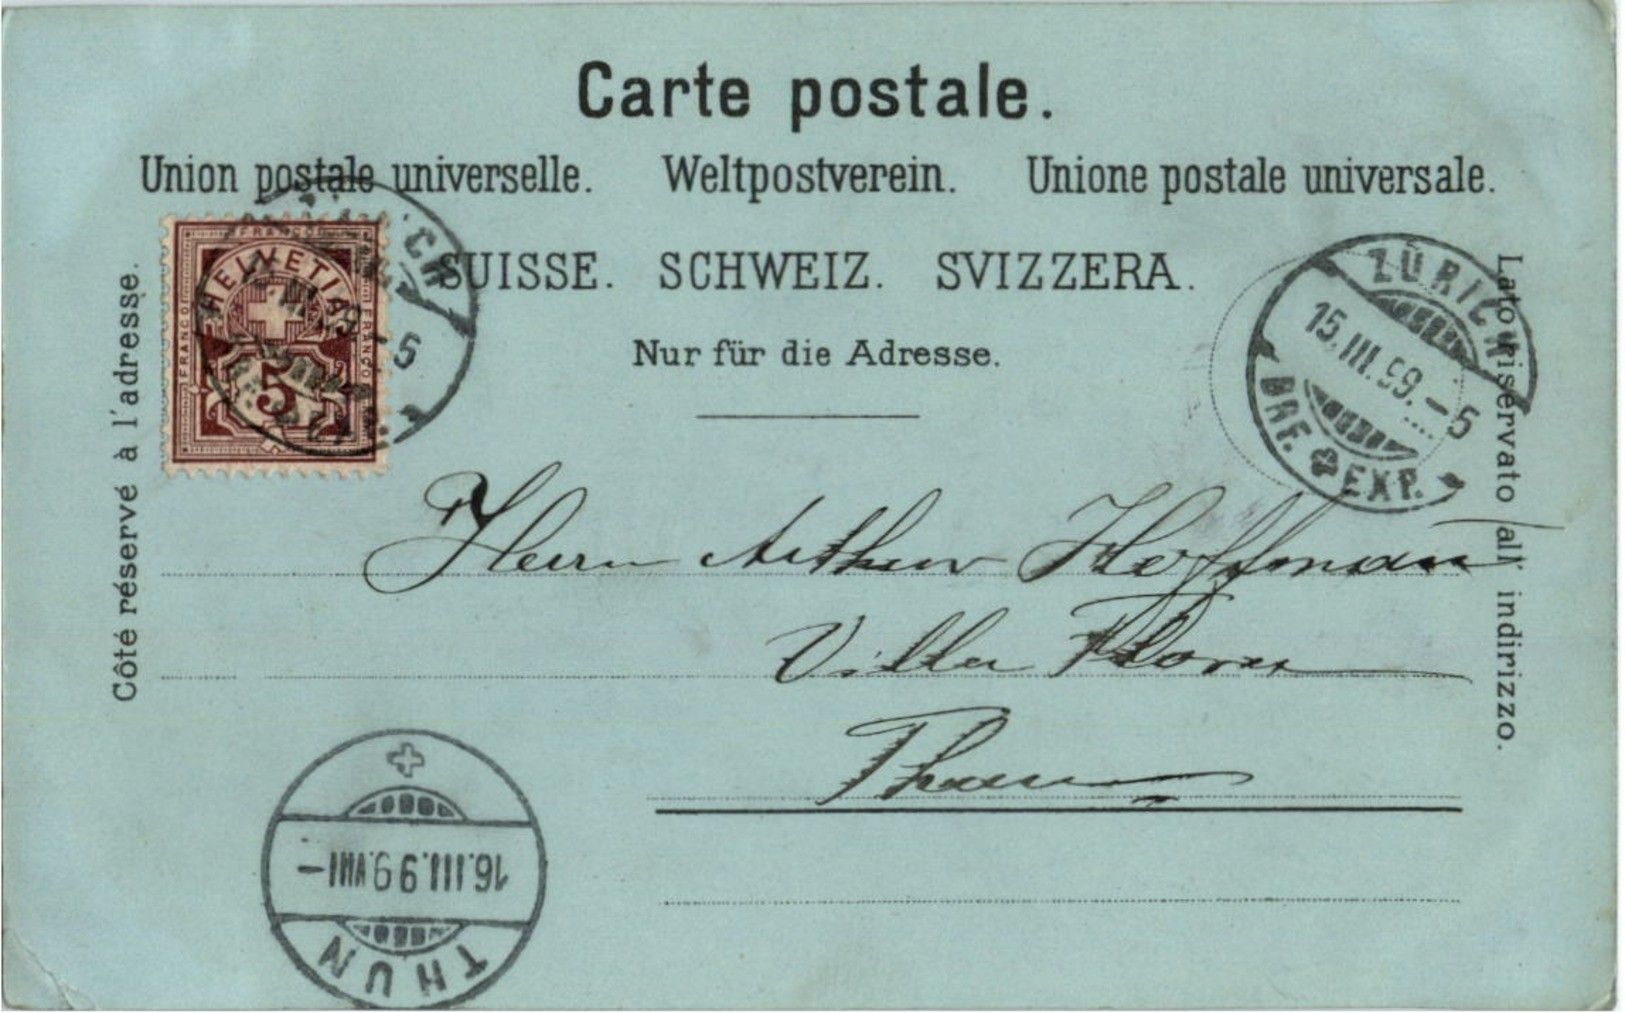 Carte postale.
Union postale universelle. Weltpostverein. Unione postale universale.
SUISSE. SCHWEIZ. SVIZZERA.
Nur für die Adresse.
Côté réservé à l'adresse.
Lato riservato all' indirizzo.
FRANCO
FRANCO
FRANCO
HELVETIA
5
ZÜRICH
15.III.99.-5
BRF. EXP.
Herrn Arthur Hoffmann
Villa Flora
Thun
16.III.99.VIII-
THUN